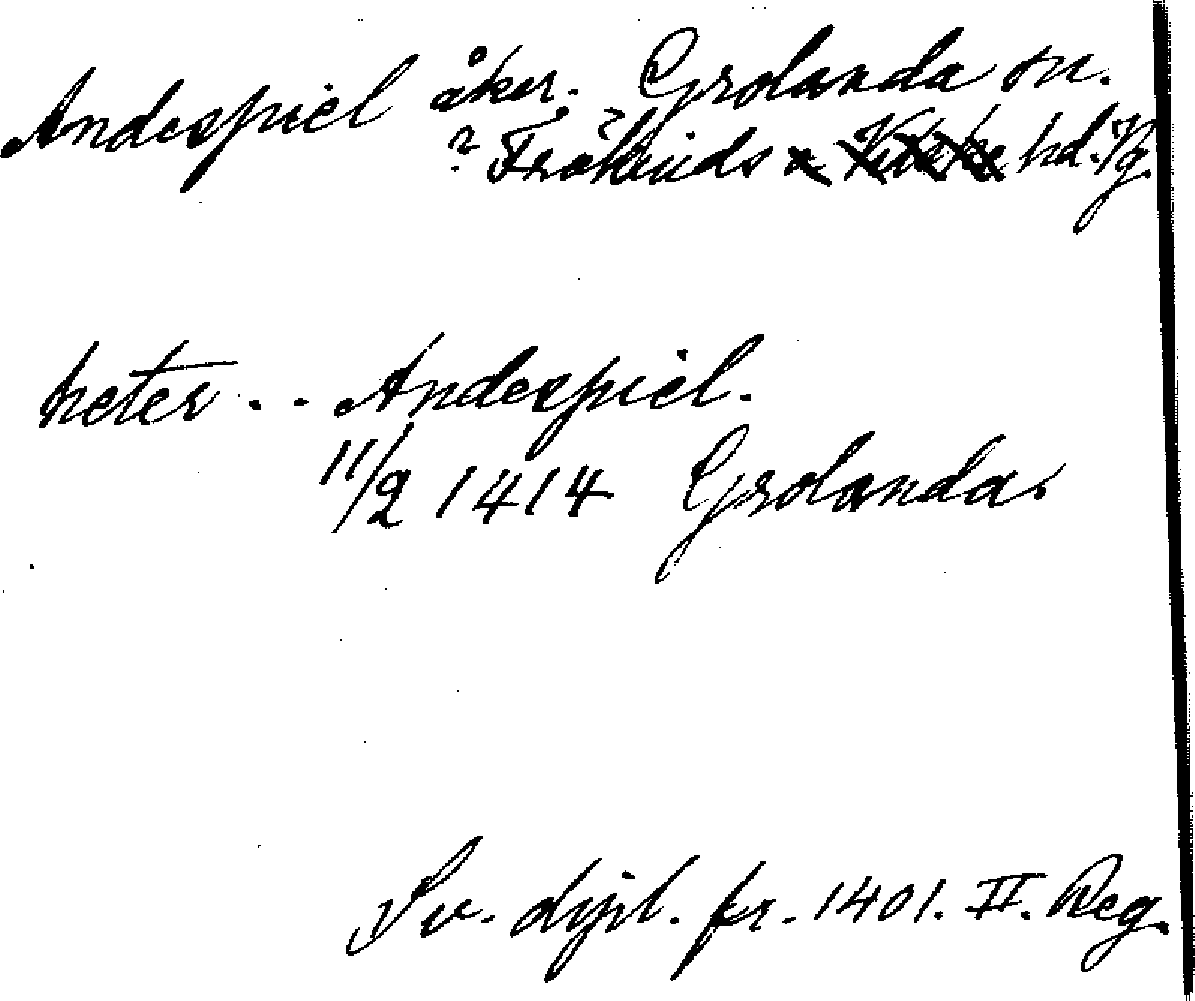 Andespiel åker. Grolanda sn.
? Frökinds hd. Vg.
heter .. Andespiel.
11/2 1414 Grolanda.
Sv. dipl. fr. 1401. II. Reg.